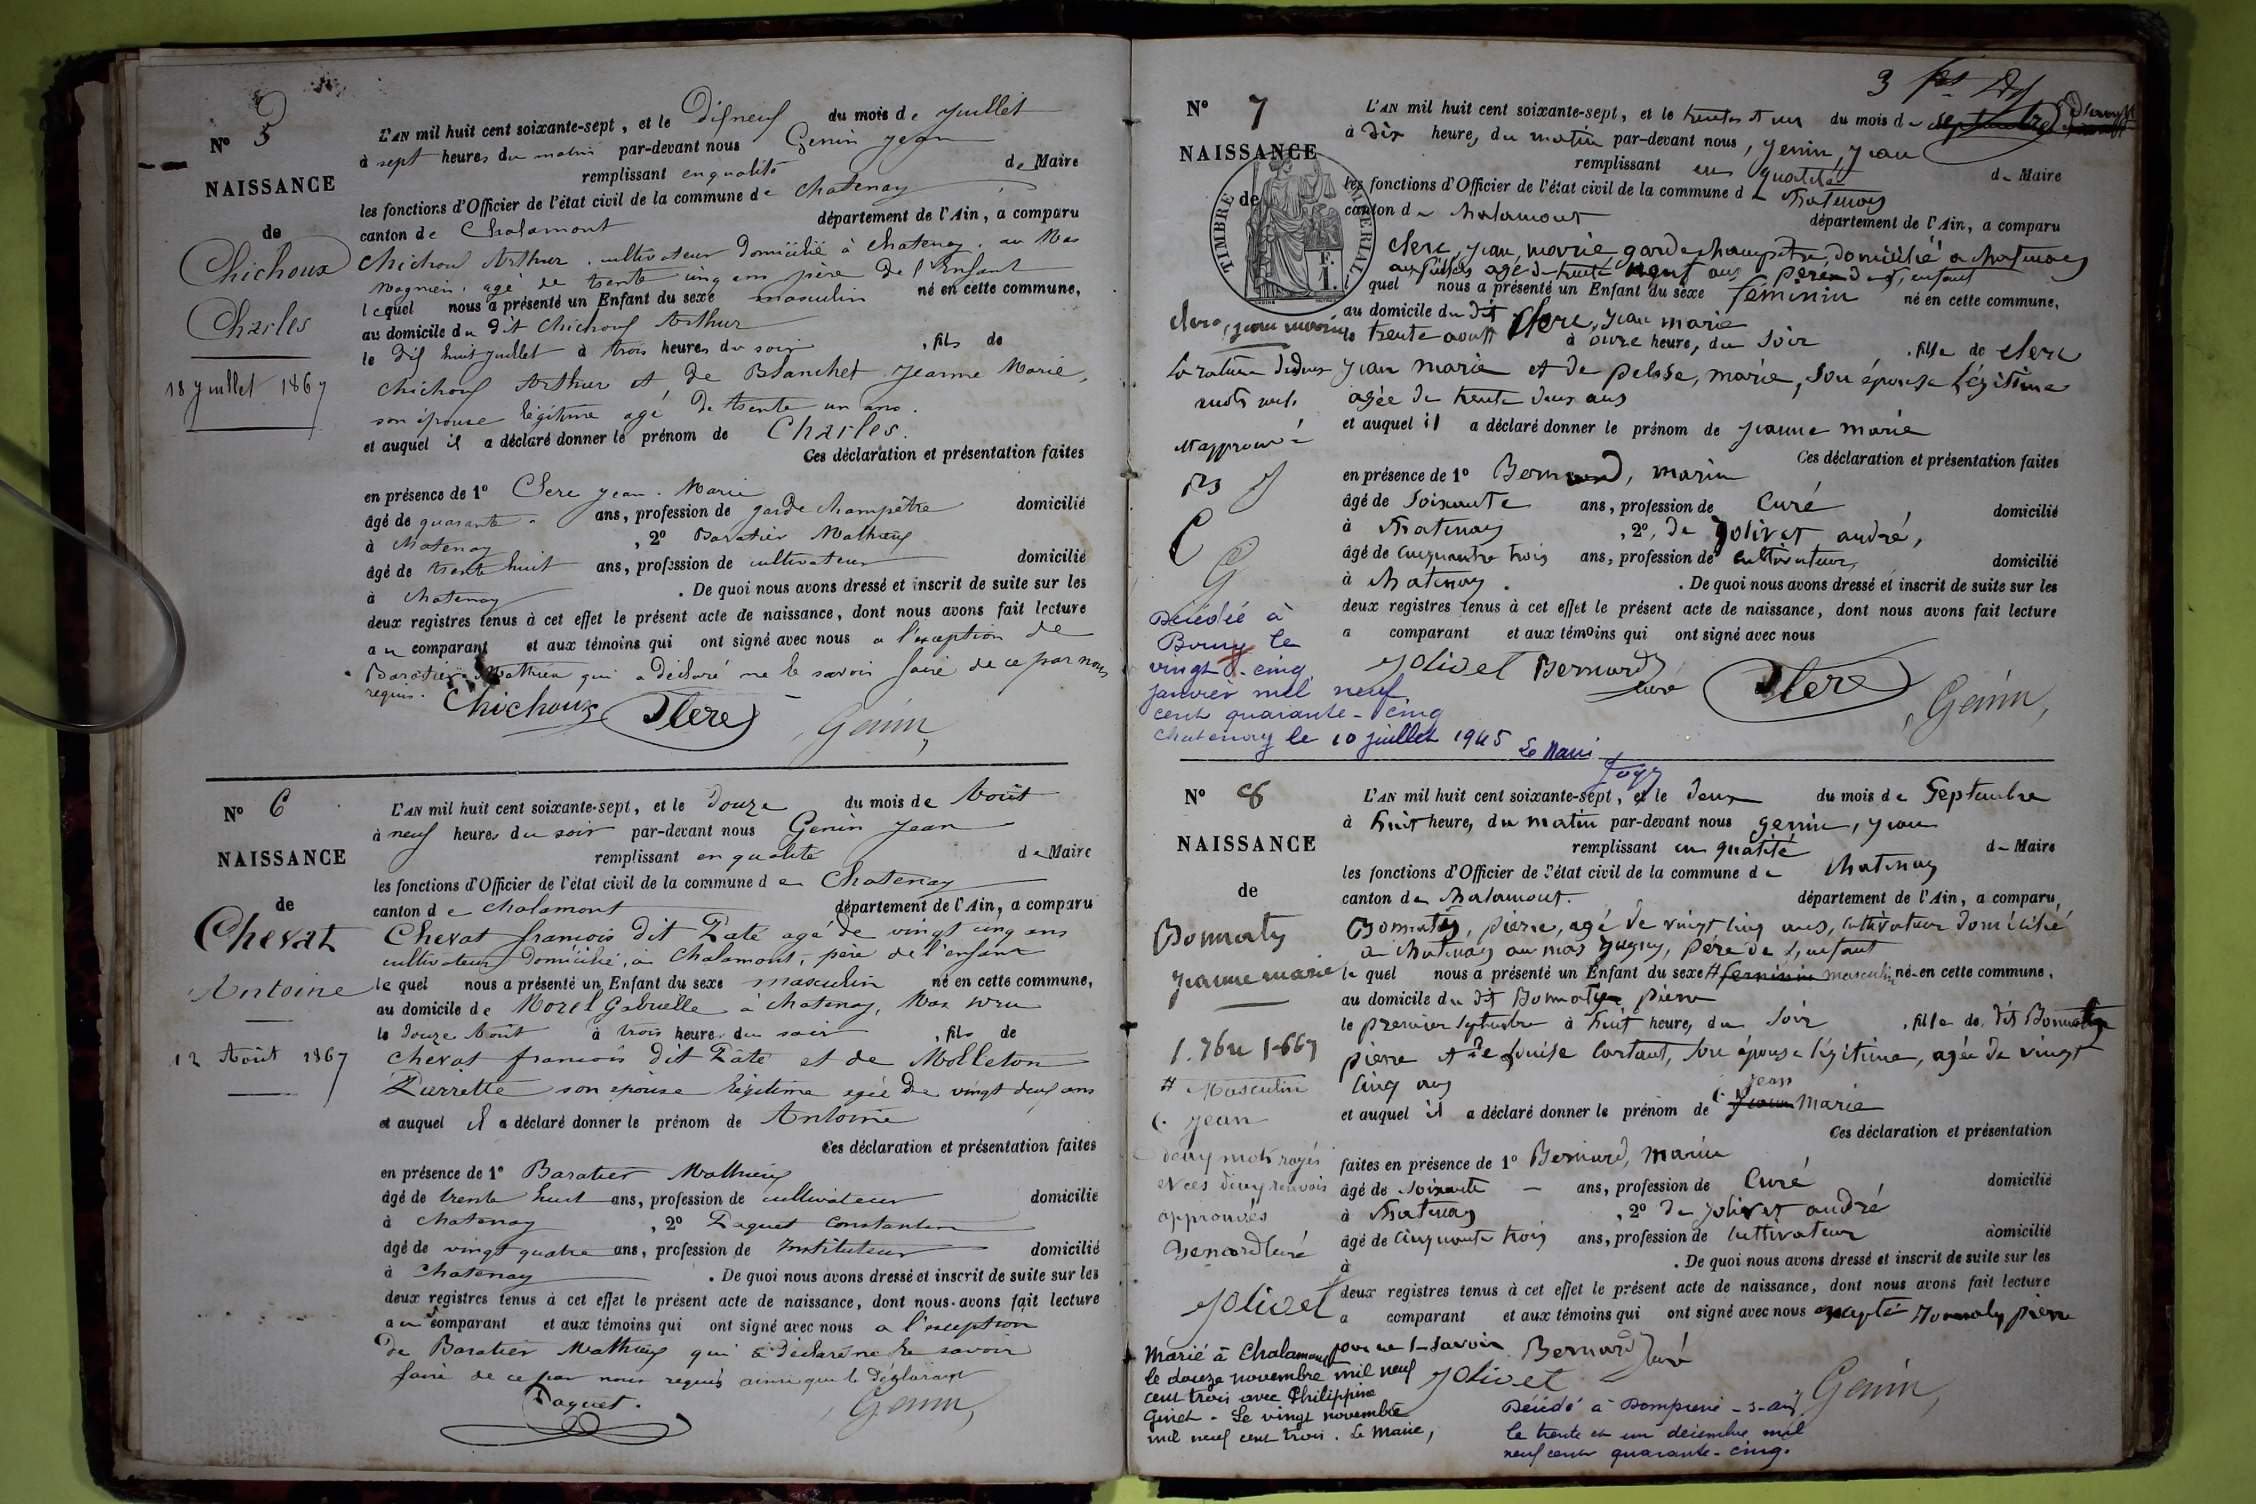 N° 5
NAISSANCE
de
Chichoux
Charles
18 Juillet 1867
L'AN mil huit cent soixante-sept, et le Dix neuf du mois de Juillet
à sept heures du matin par-devant nous Genin Jean
remplissant en qualité de Maire
les fonctions d'Officier de l'état civil de la commune de Chatenay
canton de Chalamont département de l'Ain, a comparu
Chichoux Arthur, cultivateur domicilié à Chatenay, au Mas
Magnien, agé de trente cinq ans père de l'Enfant
lequel nous a présenté un Enfant du sexe masculin né en cette commune,
au domicile du dit Chichoux Arthur
le dix huit juillet à trois heures du soir, fils de
Chichoux Arthur et de Blanchet Jeanne Marie,
son épouse légitime agé de trente un ans.
et auquel il a déclaré donner le prénom de Charles.
Ces déclaration et présentation faites
en présence de 1° Clerc Jean Marie
âgé de quarante ans, profession de garde champêtre domicilié
à Chatenay, 2° Baratier Mathieu
âgé de trente huit ans, profession de cultivateur domicilié
à Chatenay. De quoi nous avons dressé et inscrit de suite sur les
deux registres tenus à cet effet le présent acte de naissance, dont nous avons fait lecture
au comparant et aux témoins qui ont signé avec nous a l'exception de
Baratier Mathieu qui a déclaré ne le savoir faire de ce par nous
requis.
Chichoux Clerc Genin
N° 6
NAISSANCE
de
Chevat
Antoine
12 Août 1867
L'AN mil huit cent soixante-sept, et le douze du mois de Août
à neuf heures du soir par-devant nous Genin Jean
remplissant en qualité de Maire
les fonctions d'Officier de l'état civil de la commune de Chatenay
canton de Chalamont département de l'Ain, a comparu
Chevat francois dit Paté agé de vingt cinq ans
cultivateur domicilié à Chalamont, père de l'enfant
lequel nous a présenté un Enfant du sexe masculin né en cette commune,
au domicile de Morel Gabrielle à Chatenay, Mas
le douze Août à trois heures du soir, fils de
Chevat francois dit Pâté et de Molleton
Pierrette son épouse légitime agée de vingt deux ans
et auquel il a déclaré donner le prénom de Antoine
Ces déclaration et présentation faites
en présence de 1° Baratier Mathieu
âgé de trente huit ans, profession de cultivateur domicilié
à Chatenay, 2° Paquet Constantin
âgé de vingt quatre ans, profession de Instituteur domicilié
à Chatenay. De quoi nous avons dressé et inscrit de suite sur les
deux registres tenus à cet effet le présent acte de naissance, dont nous avons fait lecture
au comparant et aux témoins qui ont signé avec nous a l'exception
de Baratier Mathieu qui a déclaré ne le savoir
faire de ce par nous requis ainsi que le Déclarant
Paquet. Genin
3
N° 7
NAISSANCE
de
TIMBRE IMPERIAL
F. 1.
Clerc, jean marie
La rature de deux
mots nuls
et approuvé
L'AN mil huit cent soixante-sept, et le trente et un du mois de septembre d'aoust
à dix heures du matin par-devant nous, genin, jean
remplissant en qualité de Maire
les fonctions d'Officier de l'état civil de la commune de Chatenay
canton de Chalamont département de l'Ain, a comparu
clerc, jean, marie, garde champêtre, domicilié à chatenay
agé de trente neuf ans père de l'enfant
quel nous a présenté un Enfant du sexe féminin né en cette commune,
au domicile du dit Clerc, jean marie
le trente aoust à onze heures du soir, fille de clerc
jean marie et de pelosse, marie, son épouse légitime
agée de trente deux ans
et auquel il a déclaré donner le prénom de jeanne marie
Ces déclaration et présentation faites
en présence de 1° Bernard, marin
âgé de soixante ans, profession de Curé domicilié
à Chatenay, 2°, de jolivet andré,
âgé de cinquante trois ans, profession de cultivateur domicilié
à Chatenay. De quoi nous avons dressé et inscrit de suite sur les
deux registres tenus à cet effet le présent acte de naissance, dont nous avons fait lecture
a comparant et aux témoins qui ont signé avec nous
Jolivet Bernard curé Clerc Genin
Décédée à
Bourg le
vingt-cinq
janvier mil neuf
cent quarante-cinq
Chatenay le 10 juillet 1945 Le Maire
N° 8
NAISSANCE
de
Bonnaty
jeanne marie
1. 7bre 1867
# Masculin
jean
deux mots rayés
et ces deux renvois
approuvés
Bernard curé
Jolivet
L'AN mil huit cent soixante-sept, et le deux du mois de Septembre
à huit heures du matin par-devant nous genin, jean
remplissant en qualité de Maire
les fonctions d'Officier de l'état civil de la commune de Chatenay
canton de Chalamont. département de l'Ain, a comparu,
Bonnaty, pierre, agé de vingt cinq ans, cultivateur domicilié
a Chatenay au mas jugny, père de l'enfant
le quel nous a présenté un Enfant du sexe # féminin masculin né en cette commune,
au domicile du dit Bonnaty pierre
le premier septembre à huit heures du soir, fille de dit Bonnaty
pierre et de Louise Cortant, son épouse légitime, agée de vingt
cinq ans
et auquel il a déclaré donner le prénom de jeanne jean Marie
Ces déclaration et présentation
faites en présence de 1° Bernard, marin
âgé de soixante ans, profession de Curé domicilié
à Chatenay, 2° de jolivet andré
âgé de cinquante trois ans, profession de cultivateur domicilié
à . De quoi nous avons dressé et inscrit de suite sur les
deux registres tenus à cet effet le présent acte de naissance, dont nous avons fait lecture
a comparant et aux témoins qui ont signé avec nous excepté Bonnaty pierre
pour ne le savoir Bernard curé
Jolivet Genin
Marié à Chalamont
le douze novembre mil neuf
cent trois avec Philippine
Ginet. Le vingt novembre
mil neuf cent trois. Le Maire,
Décédé à Dompierre-s-Ain
le trente et un décembre mil
neuf cent quarante-cinq.